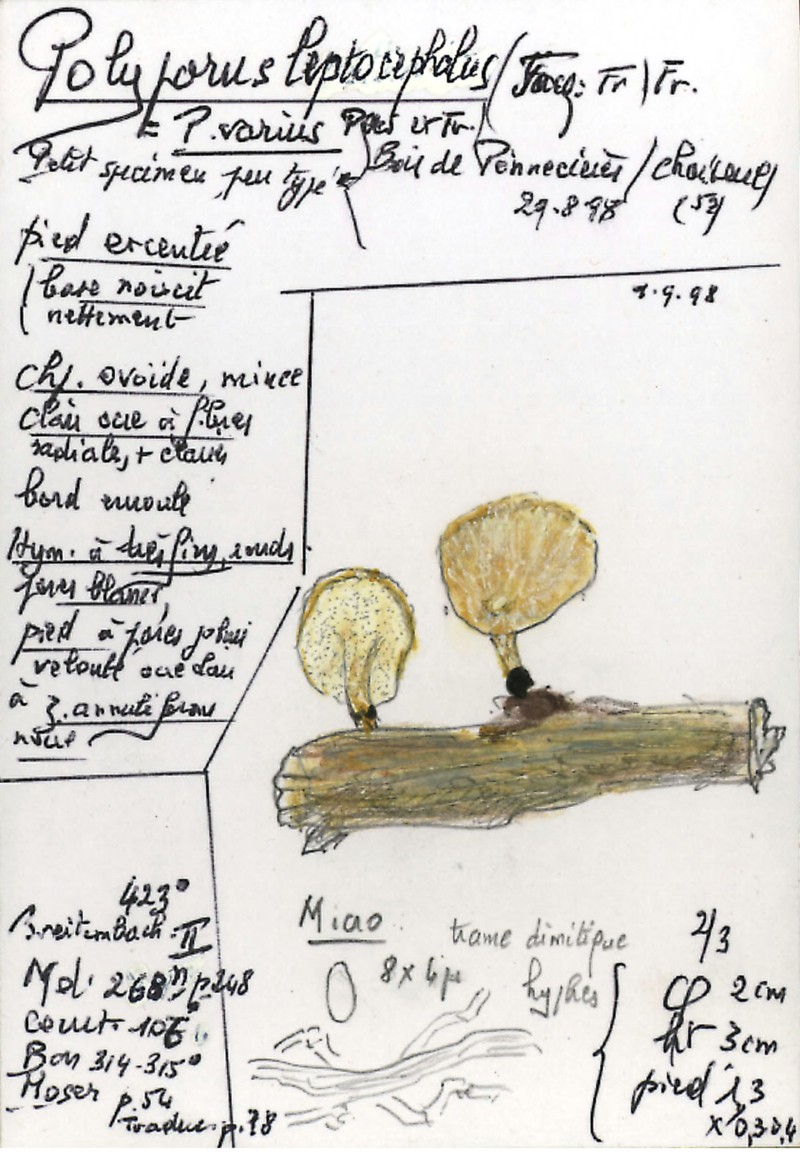 Polyporus leptocephalus (Jacq: Fr) Fr.
= P. varius Pers ex Fr.
Petit spécimen peu typé
Bois de / 
29.8.98 (52)
pied excentré
(base noircit
nettement
8.9.98
chp. ovoïde, mince
clair ocre à fibres
radiales, + claires
bord enroulé
Hym. à très fins, ronds
pores blancs,
pied à pores jolis
velouté ocre clair
à z. annuliforme
noire
423°
Breitenbach II
Md. 268 p. 248
Court. 106
Bon 314-315°
Moser p. 54
Traduc. p. 78
Micro
8 x 4µ
trame dimitique
hyphes
2/3
cp 2 cm
ht 3 cm
pied 1,3
x 0,3-0,4